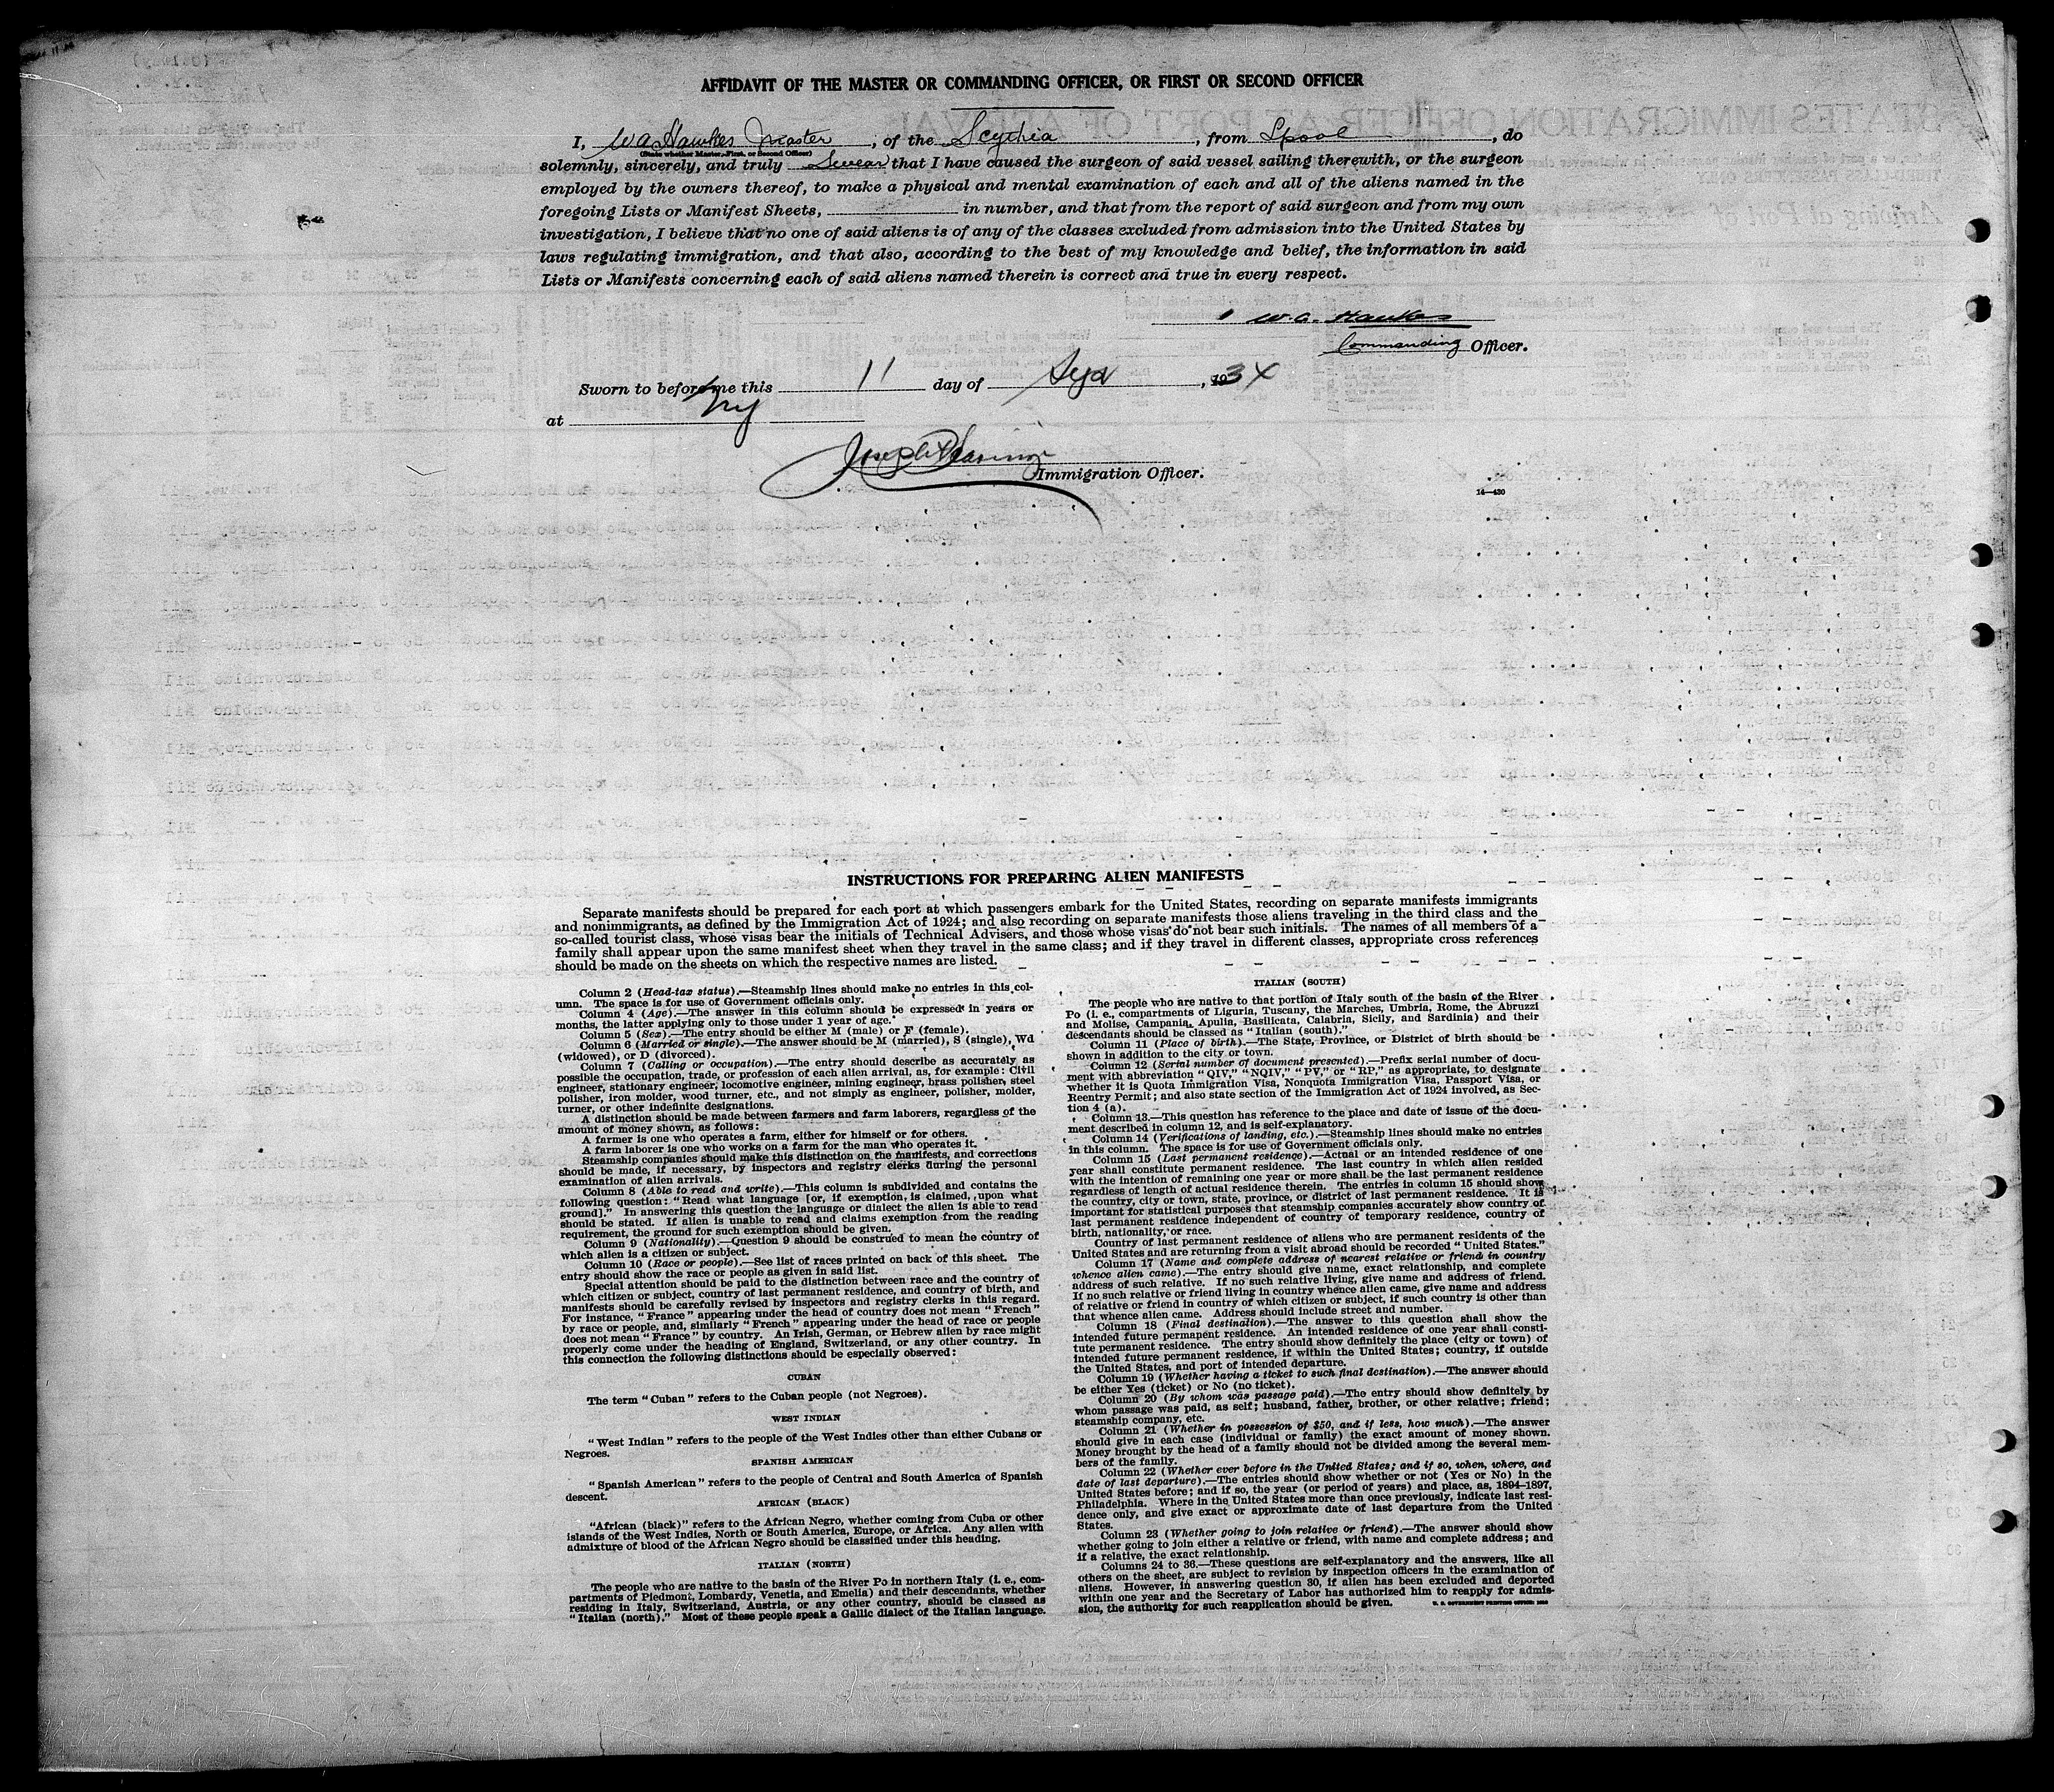 AFFIDAVIT OF THE MASTER OR COMMANDING OFFICER, OR FIRST OR SECOND OFFICER
I, W A Hawkes Master, of the Scythia, from Lpool, do
(State whether Master, First, or Second Officer)
solemnly, sincerely, and truly Swear that I have caused the surgeon of said vessel sailing therewith, or the surgeon
employed by the owners thereof, to make a physical and mental examination of each and all of the aliens named in the
foregoing Lists or Manifest Sheets, in number, and that from the report of said surgeon and from my own
investigation, I believe that no one of said aliens is of any of the classes excluded from admission into the United States by
laws regulating immigration, and that also, according to the best of my knowledge and belief, the information in said
Lists or Manifests concerning each of said aliens named therein is correct and true in every respect.
W. A. Hawkes
Commanding Officer.
Sworn to before me this 11 day of , 1934
at NY
Joseph
Immigration Officer.
14—430
INSTRUCTIONS FOR PREPARING ALIEN MANIFESTS
Separate manifests should be prepared for each port at which passengers embark for the United States, recording on separate manifests immigrants
and nonimmigrants, as defined by the Immigration Act of 1924; and also recording on separate manifests those aliens traveling in the third class and the
so-called tourist class, whose visas bear the initials of Technical Advisers, and those whose visas do not bear such initials. The names of all members of a
family shall appear upon the same manifest sheet when they travel in the same class; and if they travel in different classes, appropriate cross references
should be made on the sheets on which the respective names are listed.
Column 2 (Head-tax status).—Steamship lines should make no entries in this col-
umn. The space is for use of Government officials only.
Column 4 (Age).—The answer in this column should be expressed in years or
months, the latter applying only to those under 1 year of age.
Column 5 (Sex).—The entry should be either M (male) or F (female).
Column 6 (Married or single).—The answer should be M (married), S (single), Wd
(widowed), or D (divorced).
Column 7 (Calling or occupation).—The entry should describe as accurately as
possible the occupation, trade, or profession of each alien arrival, as, for example: Civil
engineer, stationary engineer, locomotive engineer, mining engineer, brass polisher, steel
polisher, iron molder, wood turner, etc., and not simply as engineer, polisher, molder,
turner, or other indefinite designations.
A distinction should be made between farmers and farm laborers, regardless of the
amount of money shown, as follows:
A farmer is one who operates a farm, either for himself or for others.
A farm laborer is one who works on a farm for the man who operates it.
Steamship companies should make this distinction on the manifests, and corrections
should be made, if necessary, by inspectors and registry clerks during the personal
examination of alien arrivals.
Column 8 (Able to read and write).—This column is subdivided and contains the
following question: "Read what language [or, if exemption is claimed, upon what
ground]." In answering this question the language or dialect the alien is able to read
should be stated. If alien is unable to read and claims exemption from the reading
requirement, the ground for such exemption should be given.
Column 9 (Nationality).—Question 9 should be construed to mean the country of
which alien is a citizen or subject.
Column 10 (Race or people).—See list of races printed on back of this sheet. The
entry should show the race or people as given in said list.
Special attention should be paid to the distinction between race and the country of
which citizen or subject, country of last permanent residence, and country of birth, and
manifests should be carefully revised by inspectors and registry clerks in this regard.
For instance, "France" appearing under the head of country does not mean "French"
by race or people, and, similarly "French" appearing under the head of race or people
does not mean "France" by country. An Irish, German, or Hebrew alien by race might
properly come under the heading of England, Switzerland, or any other country. In
this connection the following distinctions should be especially observed:
CUBAN
The term "Cuban" refers to the Cuban people (not Negroes).
WEST INDIAN
"West Indian" refers to the people of the West Indies other than either Cubans or
Negroes.
SPANISH AMERICAN
"Spanish American" refers to the people of Central and South America of Spanish
descent.
AFRICAN (BLACK)
"African (black)" refers to the African Negro, whether coming from Cuba or other
islands of the West Indies, North or South America, Europe, or Africa. Any alien with
admixture of blood of the African Negro should be classified under this heading.
ITALIAN (NORTH)
The people who are native to the basin of the River Po in northern Italy (i. e., com-
partments of Piedmont, Lombardy, Venetia, and Emelia) and their descendants, whether
residing in Italy, Switzerland, Austria, or any other country, should be classed as
"Italian (north)." Most of these people speak a Gallic dialect of the Italian language.
ITALIAN (SOUTH)
The people who are native to that portion of Italy south of the basin of the River
Po (i. e., compartments of Liguria, Tuscany, the Marches, Umbria, Rome, the Abruzzi
and Molise, Campania, Apulia, Basilicata, Calabria, Sicily, and Sardinia) and their
descendants should be classed as "Italian (south)."
Column 11 (Place of birth).—The State, Province, or District of birth should be
shown in addition to the city or town.
Column 12 (Serial number of document presented).—Prefix serial number of docu-
ment with abbreviation "QIV," "NQIV," "PV," or "RP," as appropriate, to designate
whether it is Quota Immigration Visa, Nonquota Immigration Visa, Passport Visa, or
Reentry Permit; and also state section of the Immigration Act of 1924 involved, as Sec-
tion 4 (a).
Column 13.—This question has reference to the place and date of issue of the docu-
ment described in column 12, and is self-explanatory.
Column 14 (Verifications of landing, etc.).—Steamship lines should make no entries
in this column. The space is for use of Government officials only.
Column 15 (Last permanent residence).—Actual or an intended residence of one
year shall constitute permanent residence. The last country in which alien resided
with the intention of remaining one year or more shall be the last permanent residence
regardless of length of actual residence therein. The entries in column 15 should show
the country, city or town, state, province, or district of last permanent residence. It is
important for statistical purposes that steamship companies accurately show country of
last permanent residence independent of country of temporary residence, country of
birth, nationality, or race.
Country of last permanent residence of aliens who are permanent residents of the
United States and are returning from a visit abroad should be recorded "United States."
Column 17 (Name and complete address of nearest relative or friend in country
whence alien came).—The entry should give name, exact relationship, and complete
address of such relative. If no such relative living, give name and address of friend.
If no such relative or friend living in country whence alien came, give name and address
of relative or friend in country of which citizen or subject, if such country is other than
that whence alien came. Address should include street and number.
Column 18 (Final destination).—The answer to this question shall show the
intended future permanent residence. An intended residence of one year shall consti-
tute permanent residence. The entry should show definitely the place (city or town) of
intended future permanent residence, if within the United States; country, if outside
the United States, and port of intended departure.
Column 19 (Whether having a ticket to such final destination).—The answer should
be either Yes (ticket) or No (no ticket).
Column 20 (By whom was passage paid).—The entry should show definitely by
whom passage was paid, as self; husband, father, brother, or other relative; friend;
steamship company, etc.
Column 21 (Whether in possession of $50, and if less, how much).—The answer
should give in each case (individual or family) the exact amount of money shown.
Money brought by the head of a family should not be divided among the several mem-
bers of the family.
Column 22 (Whether ever before in the United States; and if so, when, where, and
date of last departure).—The entries should show whether or not (Yes or No) in the
United States before; and if so, the year (or period of years) and place, as, 1894–1897,
Philadelphia. Where in the United States more than once previously, indicate last resi-
dence only, and give exact or approximate date of last departure from the United
States.
Column 23 (Whether going to join relative or friend).—The answer should show
whether going to join either a relative or friend, with name and complete address; and
if a relative, the exact relationship.
Columns 24 to 36.—These questions are self-explanatory and the answers, like all
others on the sheet, are subject to revision by inspection officers in the examination of
aliens. However, in answering question 30, if alien has been excluded and deported
within one year and the Secretary of Labor has authorized him to reapply for admis-
sion, the authority for such reapplication should be given.
U. S. GOVERNMENT PRINTING OFFICE